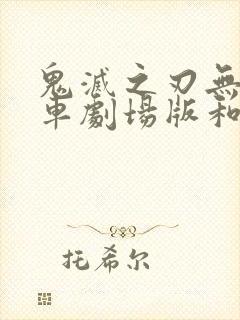 鬼滅之刃無
車劇場版和
托希尔